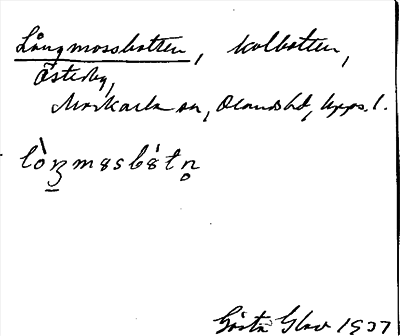 Långmossbotten, kolbotten,
Österby,
Morkarla sn, Olands hd, Upps. l.
lò̱ŋmɞsbɞ́tn̥
Gösta Glav 1937